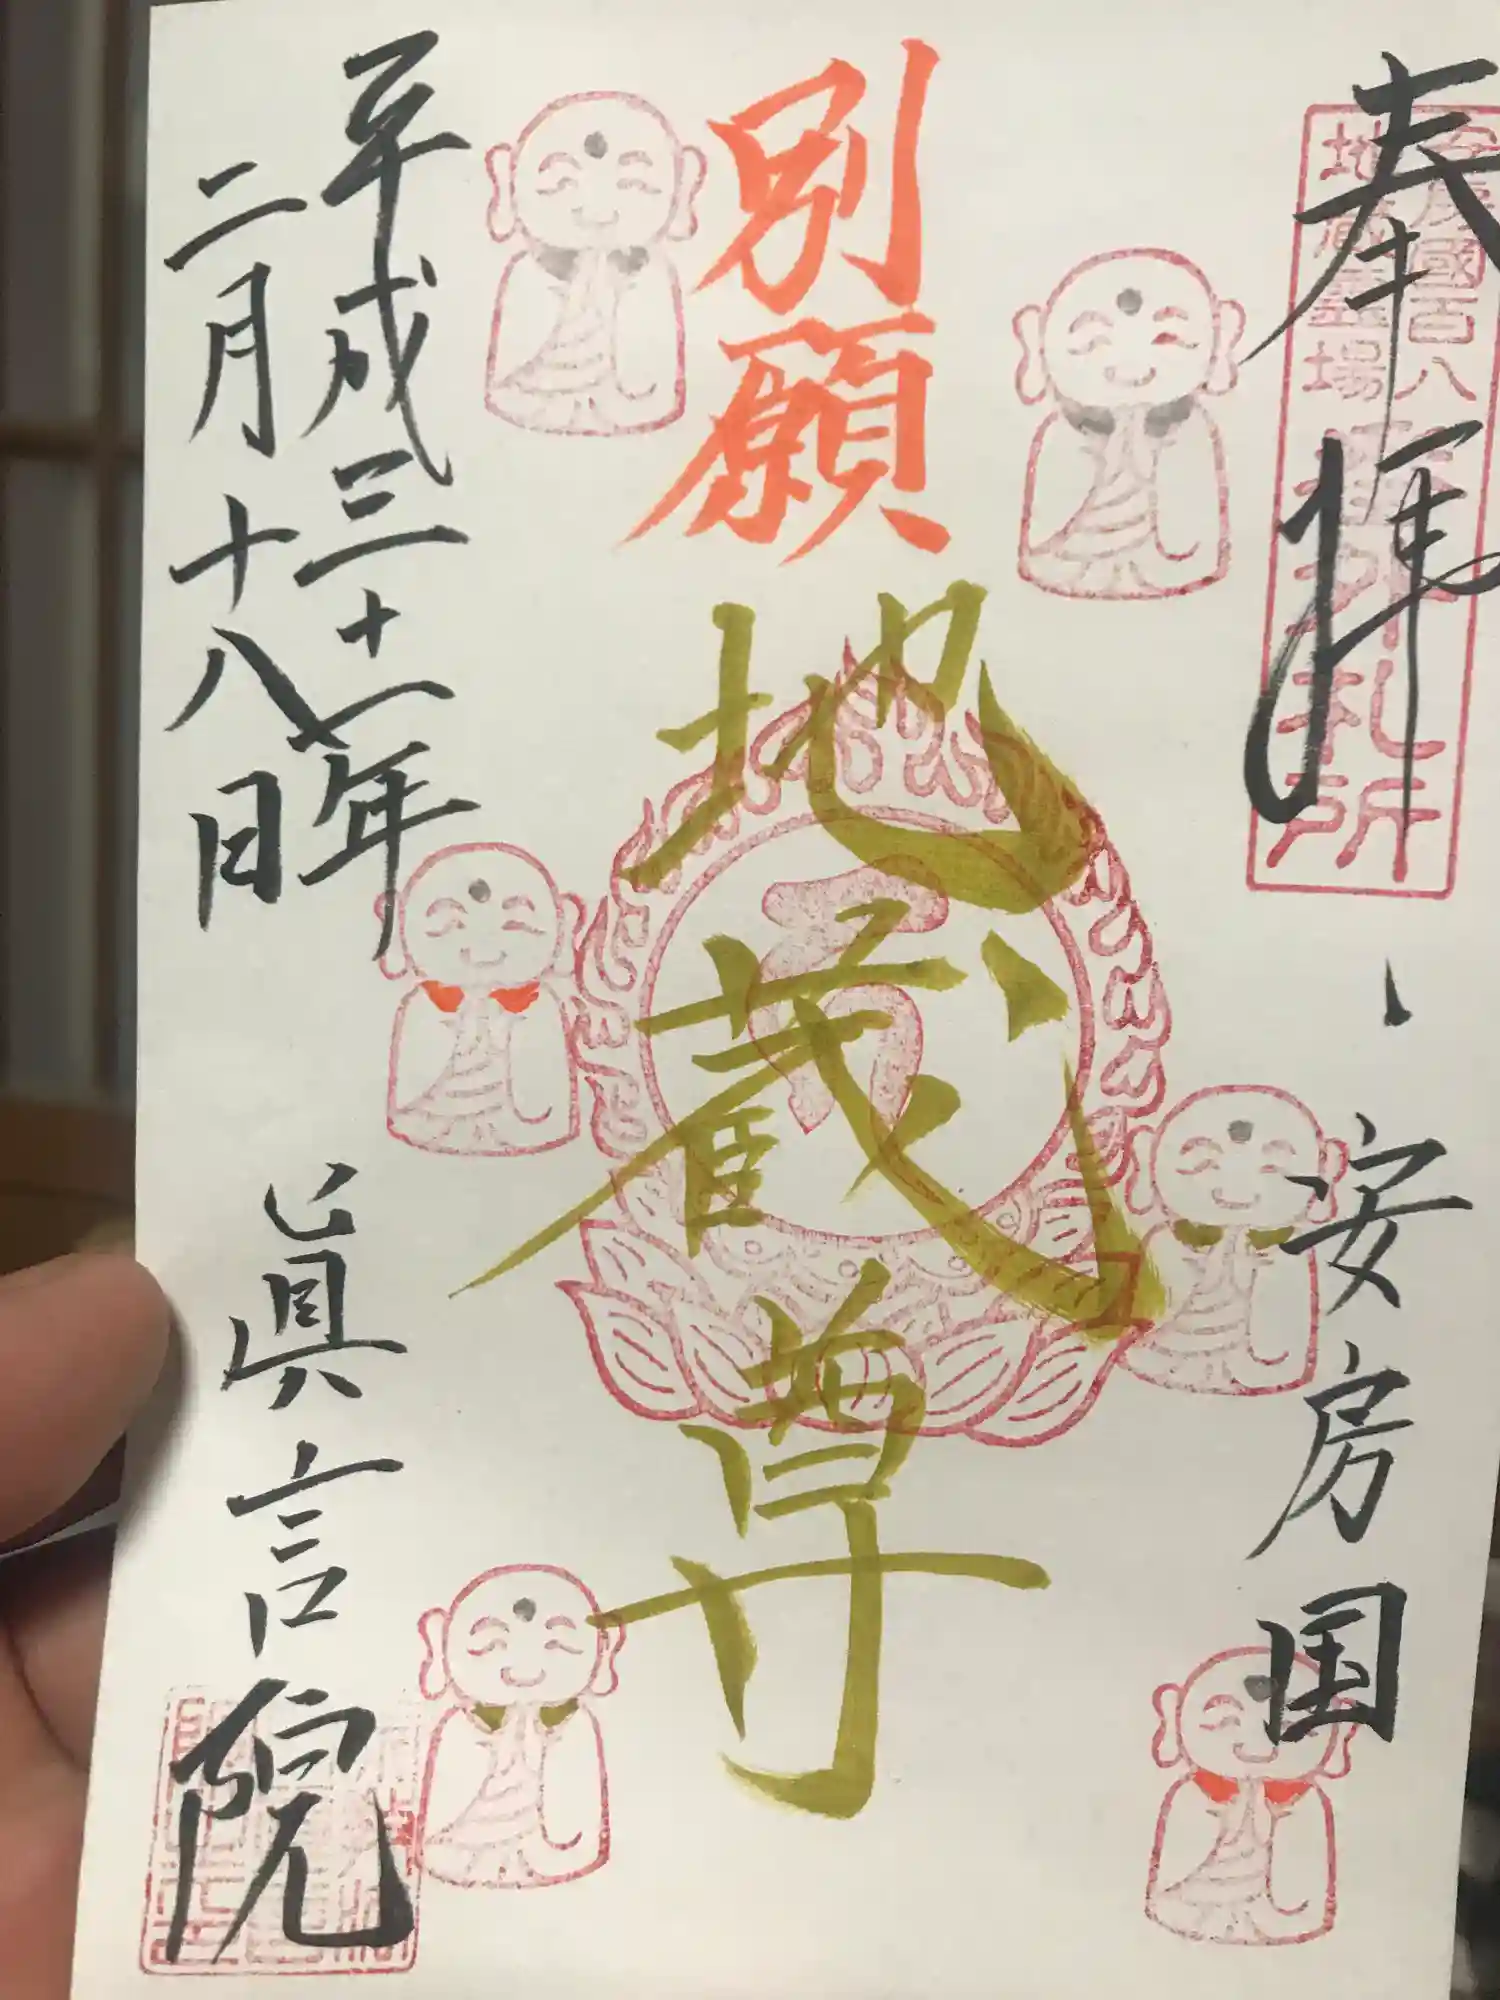 奉拝
安房国
安房國百八
地蔵霊場
札所
別願
地蔵尊
平成三十一年
二月十八日
眞言院